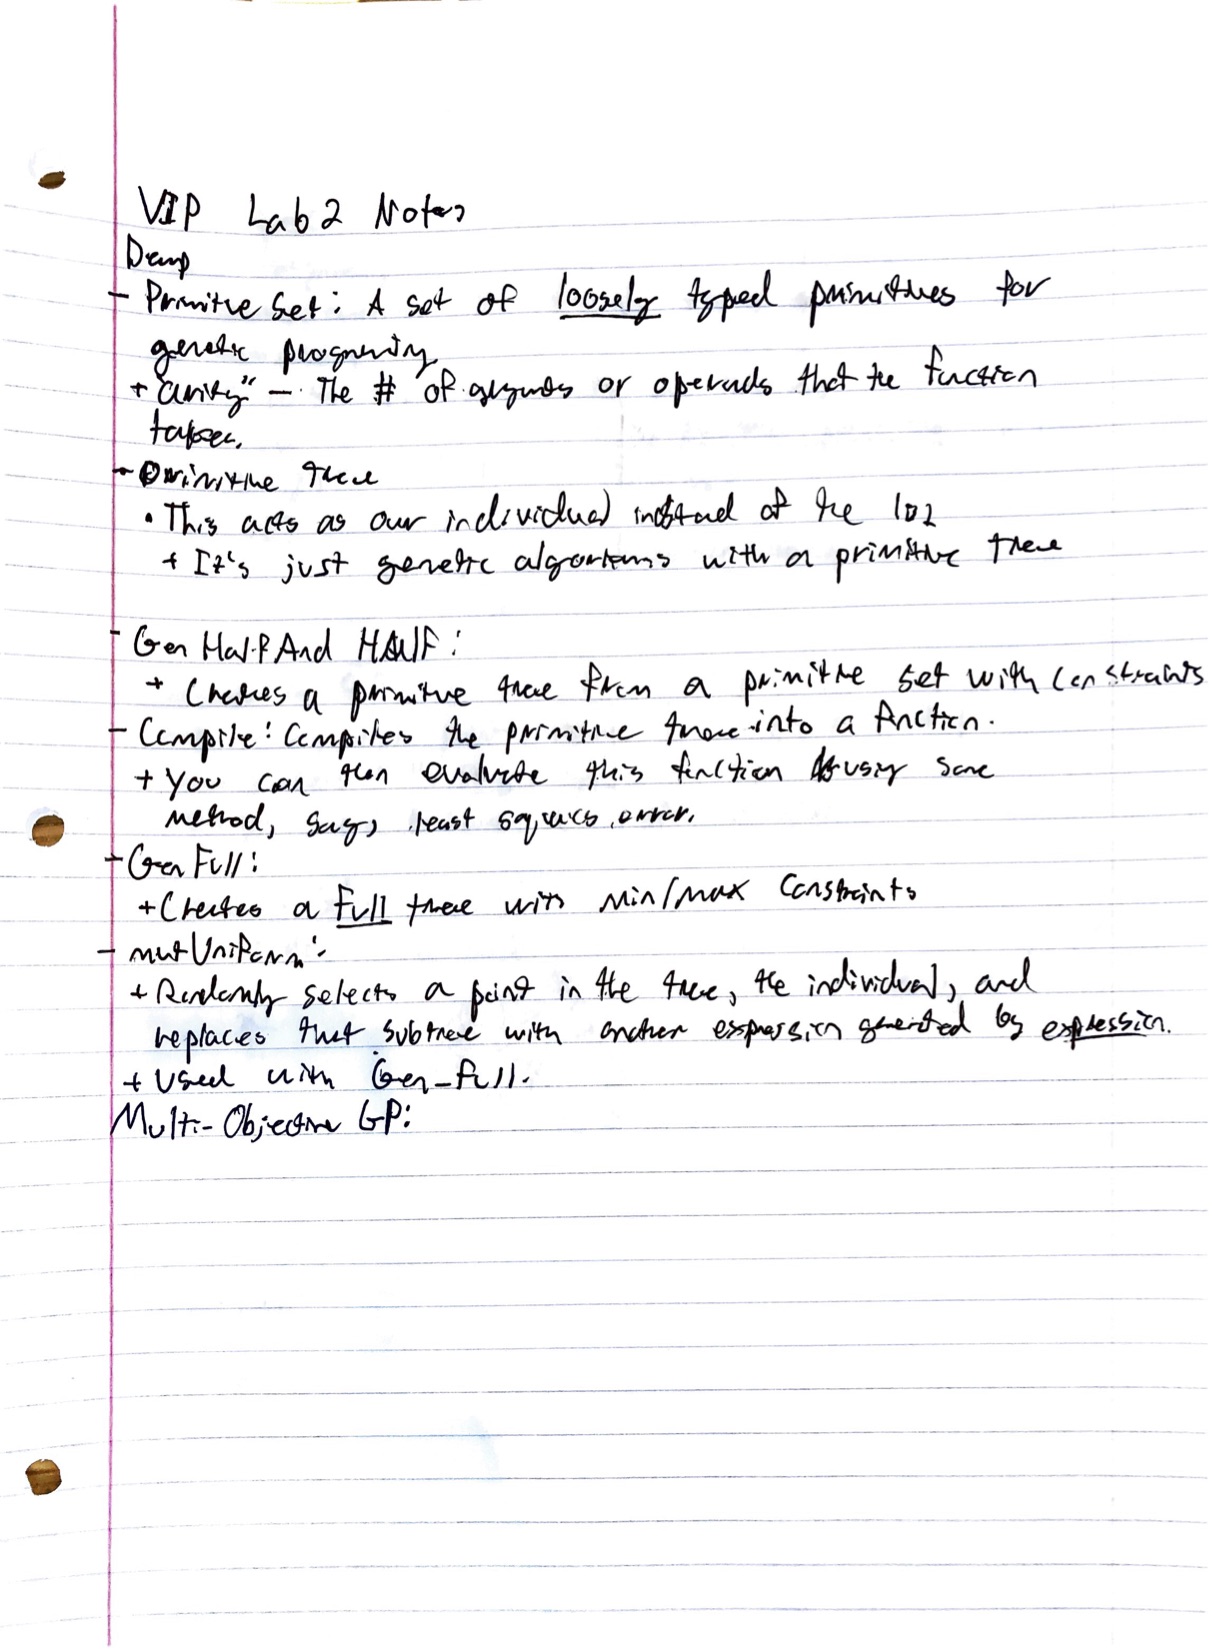 VIP Lab 2 Notes
Deap
- Primitive Set: A set of loosely typed primitives for
genetic programming
+ "arity" - The # of arguments or operands that the function
takes.
- Primitive Tree
• This acts as our individual instead of the list
+ It's just genetic algorithms with a primitive tree
- Gen Half And Half:
+ Creates a primitive tree from a primitive set with constraints
- Compile: Compiles the primitive tree into a function.
+ You can then evaluate this function using some
method, say, least squares error.
- Gen Full:
+ Creates a Full tree with min/max constraints
- mutUniform:
+ Randomly selects a point in the tree, the individual, and
replaces that subtree with another expression generated by expression.
+ Used with Gen_full.
Multi-Objective GP: